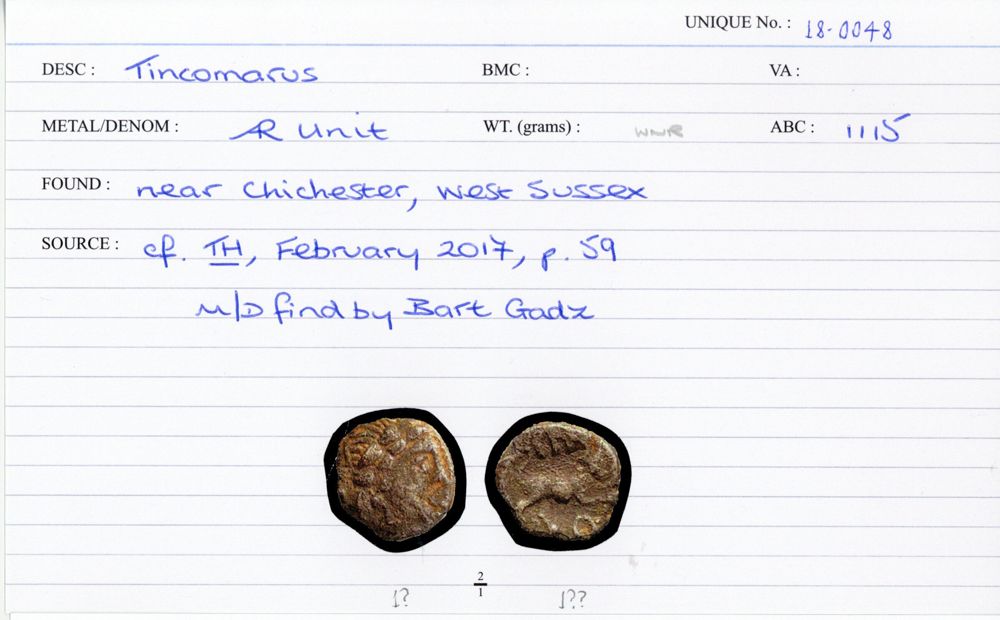 UNIQUE No. : 18-0048
DESC : Tincomarus BMC : VA :
METAL/DENOM : AR Unit WT. (grams) : WNR ABC : 1115
FOUND : near Chichester, West Sussex
SOURCE : cf. TH, February 2017, p. 59
M/D find by Bart Gadz
2
1
1? 1??